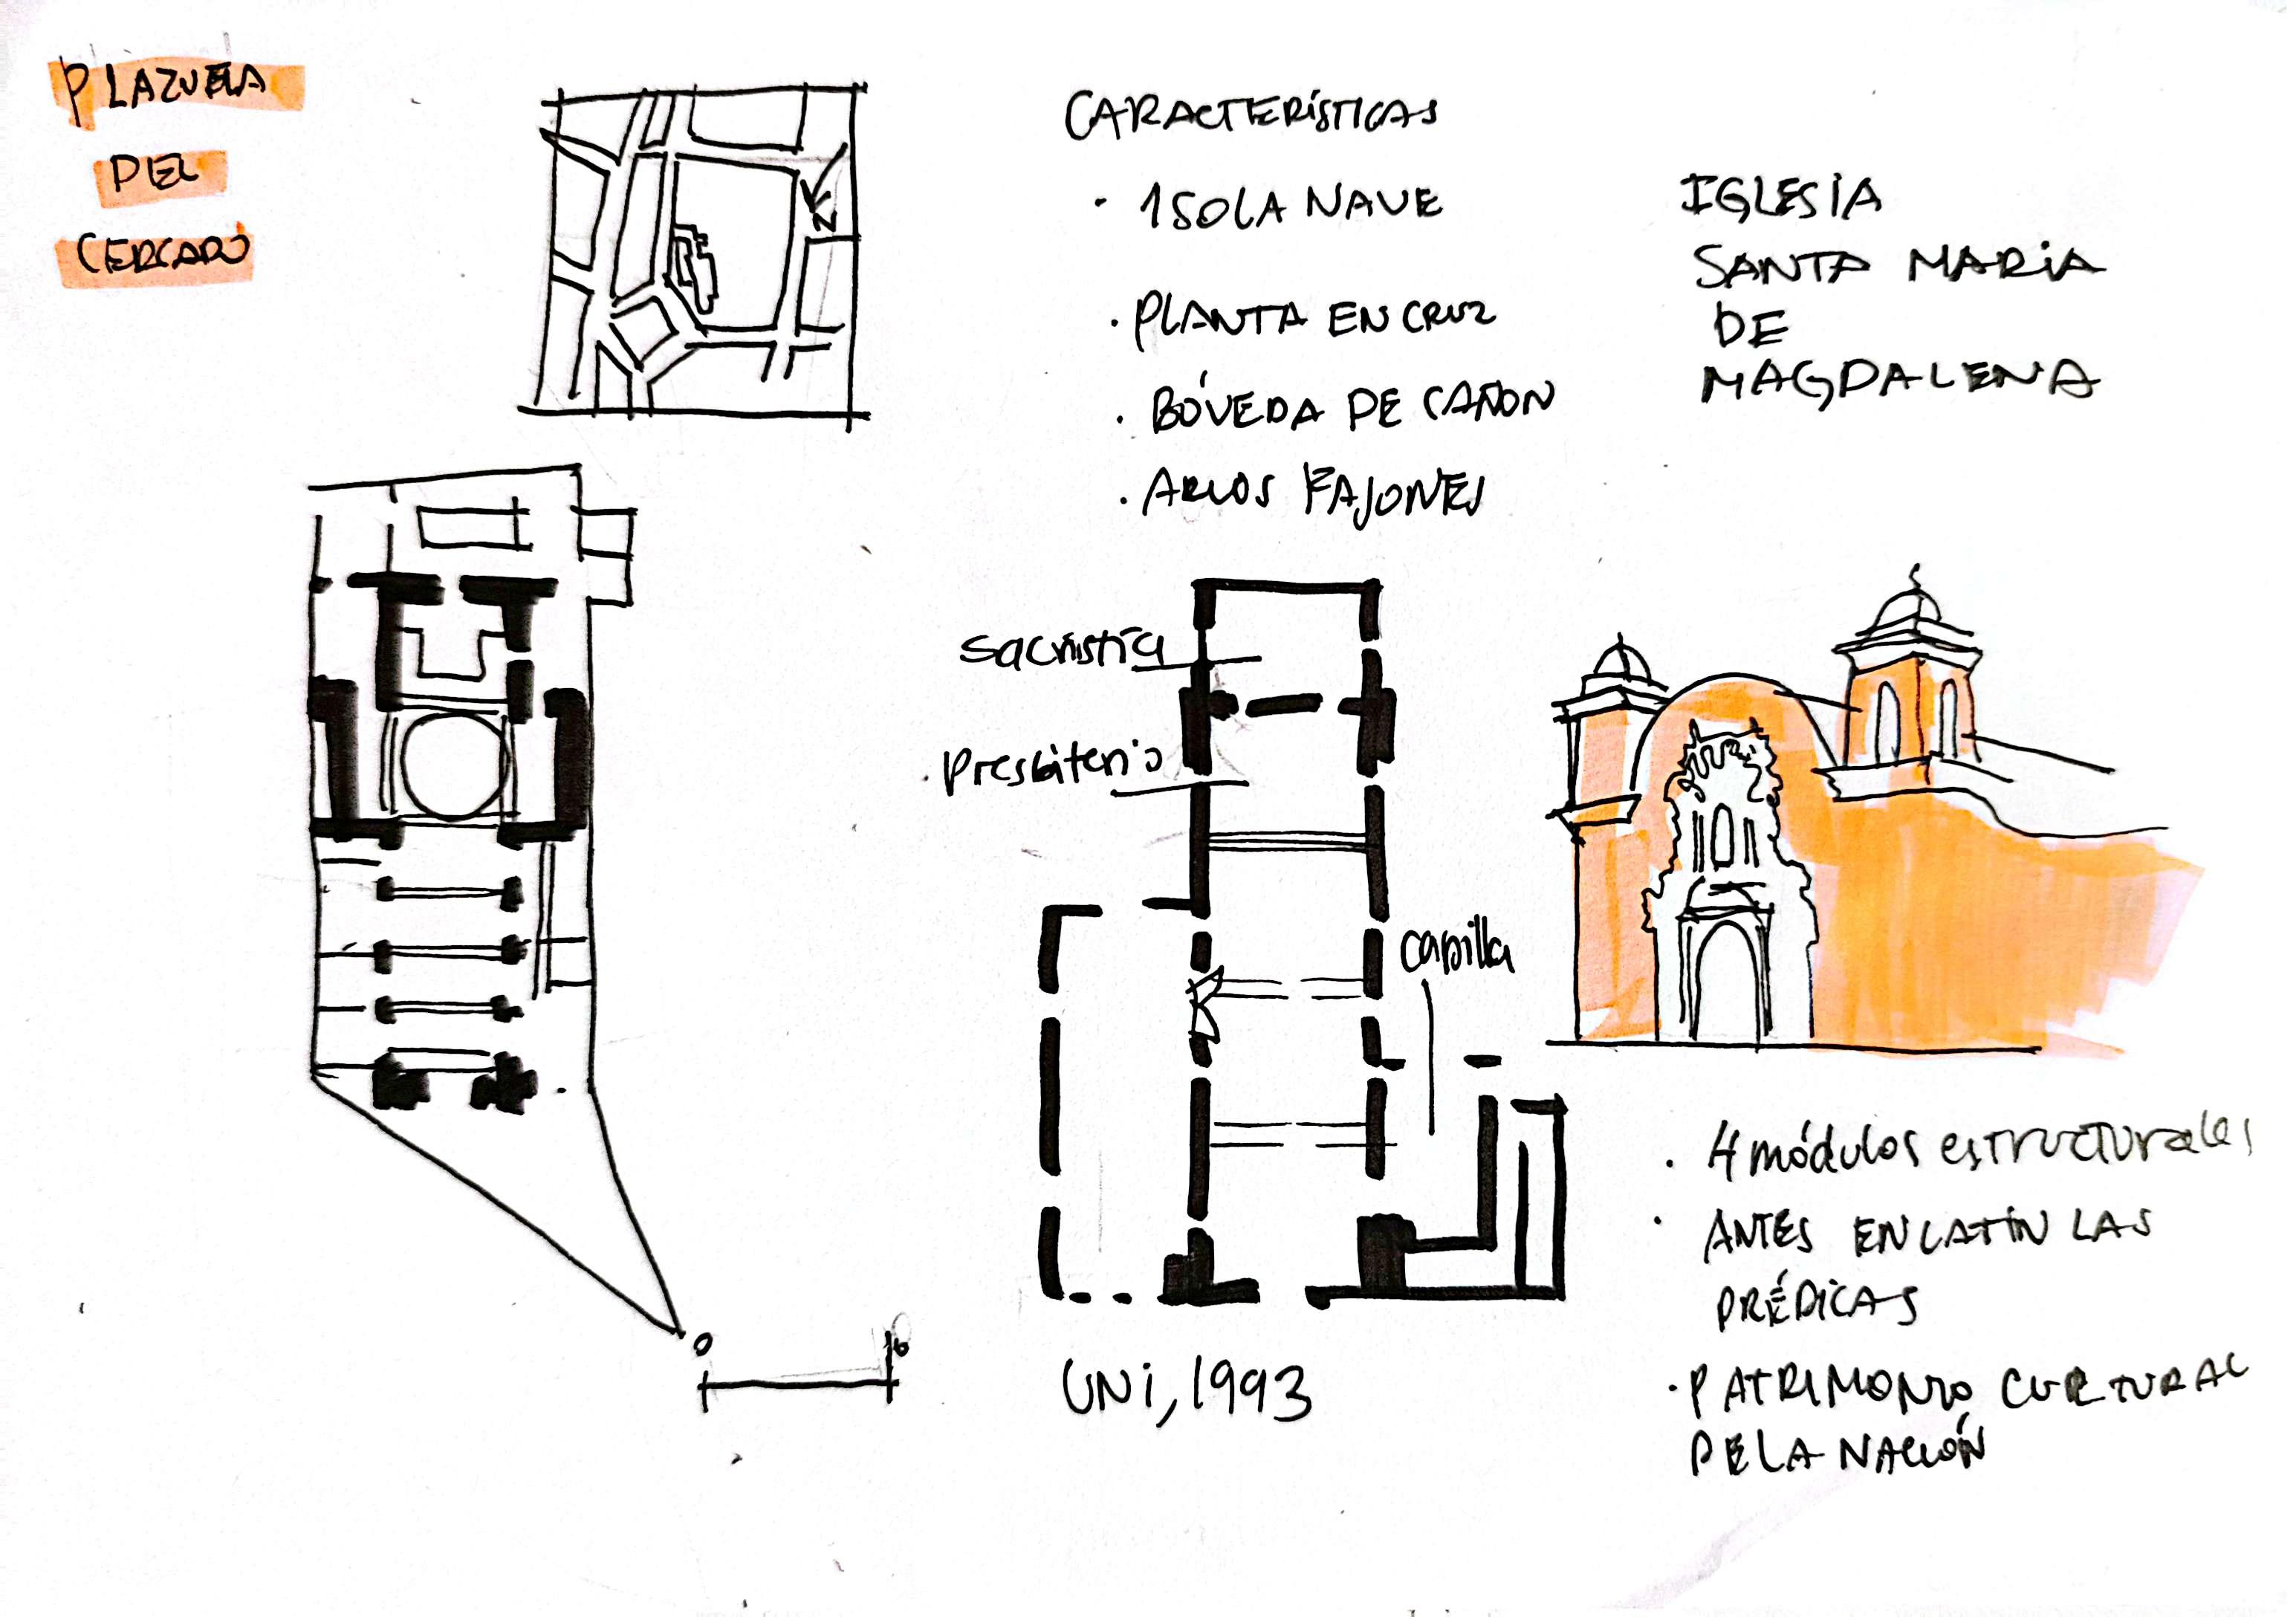 PLAZUELA
DEL
CERCADO
N
CARACTERÍSTICAS
· 1 SOLA NAVE
· PLANTA EN CRUZ
· BÓVEDA DE CAÑON
· ARCOS FAJONES
IGLESIA
SANTA MARIA
DE
MAGDALENA
sacristía
presbiterio
capilla
0
UNI, 1993
· 4 módulos estructurales
· ANTES EN LATÍN LAS
PRÉDICAS
· PATRIMONIO CULTURAL
DE LA NACIÓN